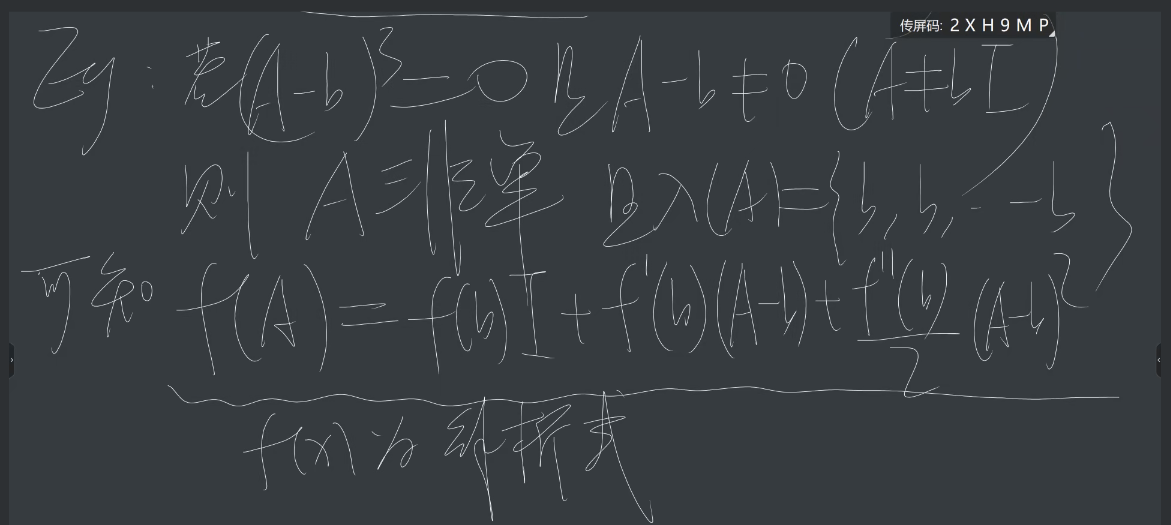 传屏码: 2XH9MP
Eg: 若(A-b)³=0 且A-b≠0 (A≠bI)
则 A为非单 且λ(A)={b, b, ---b}
可知 f(A)=f(b)I+f'(b)(A-b)+f''(b)/2 (A-b)²
f(x)为解析式